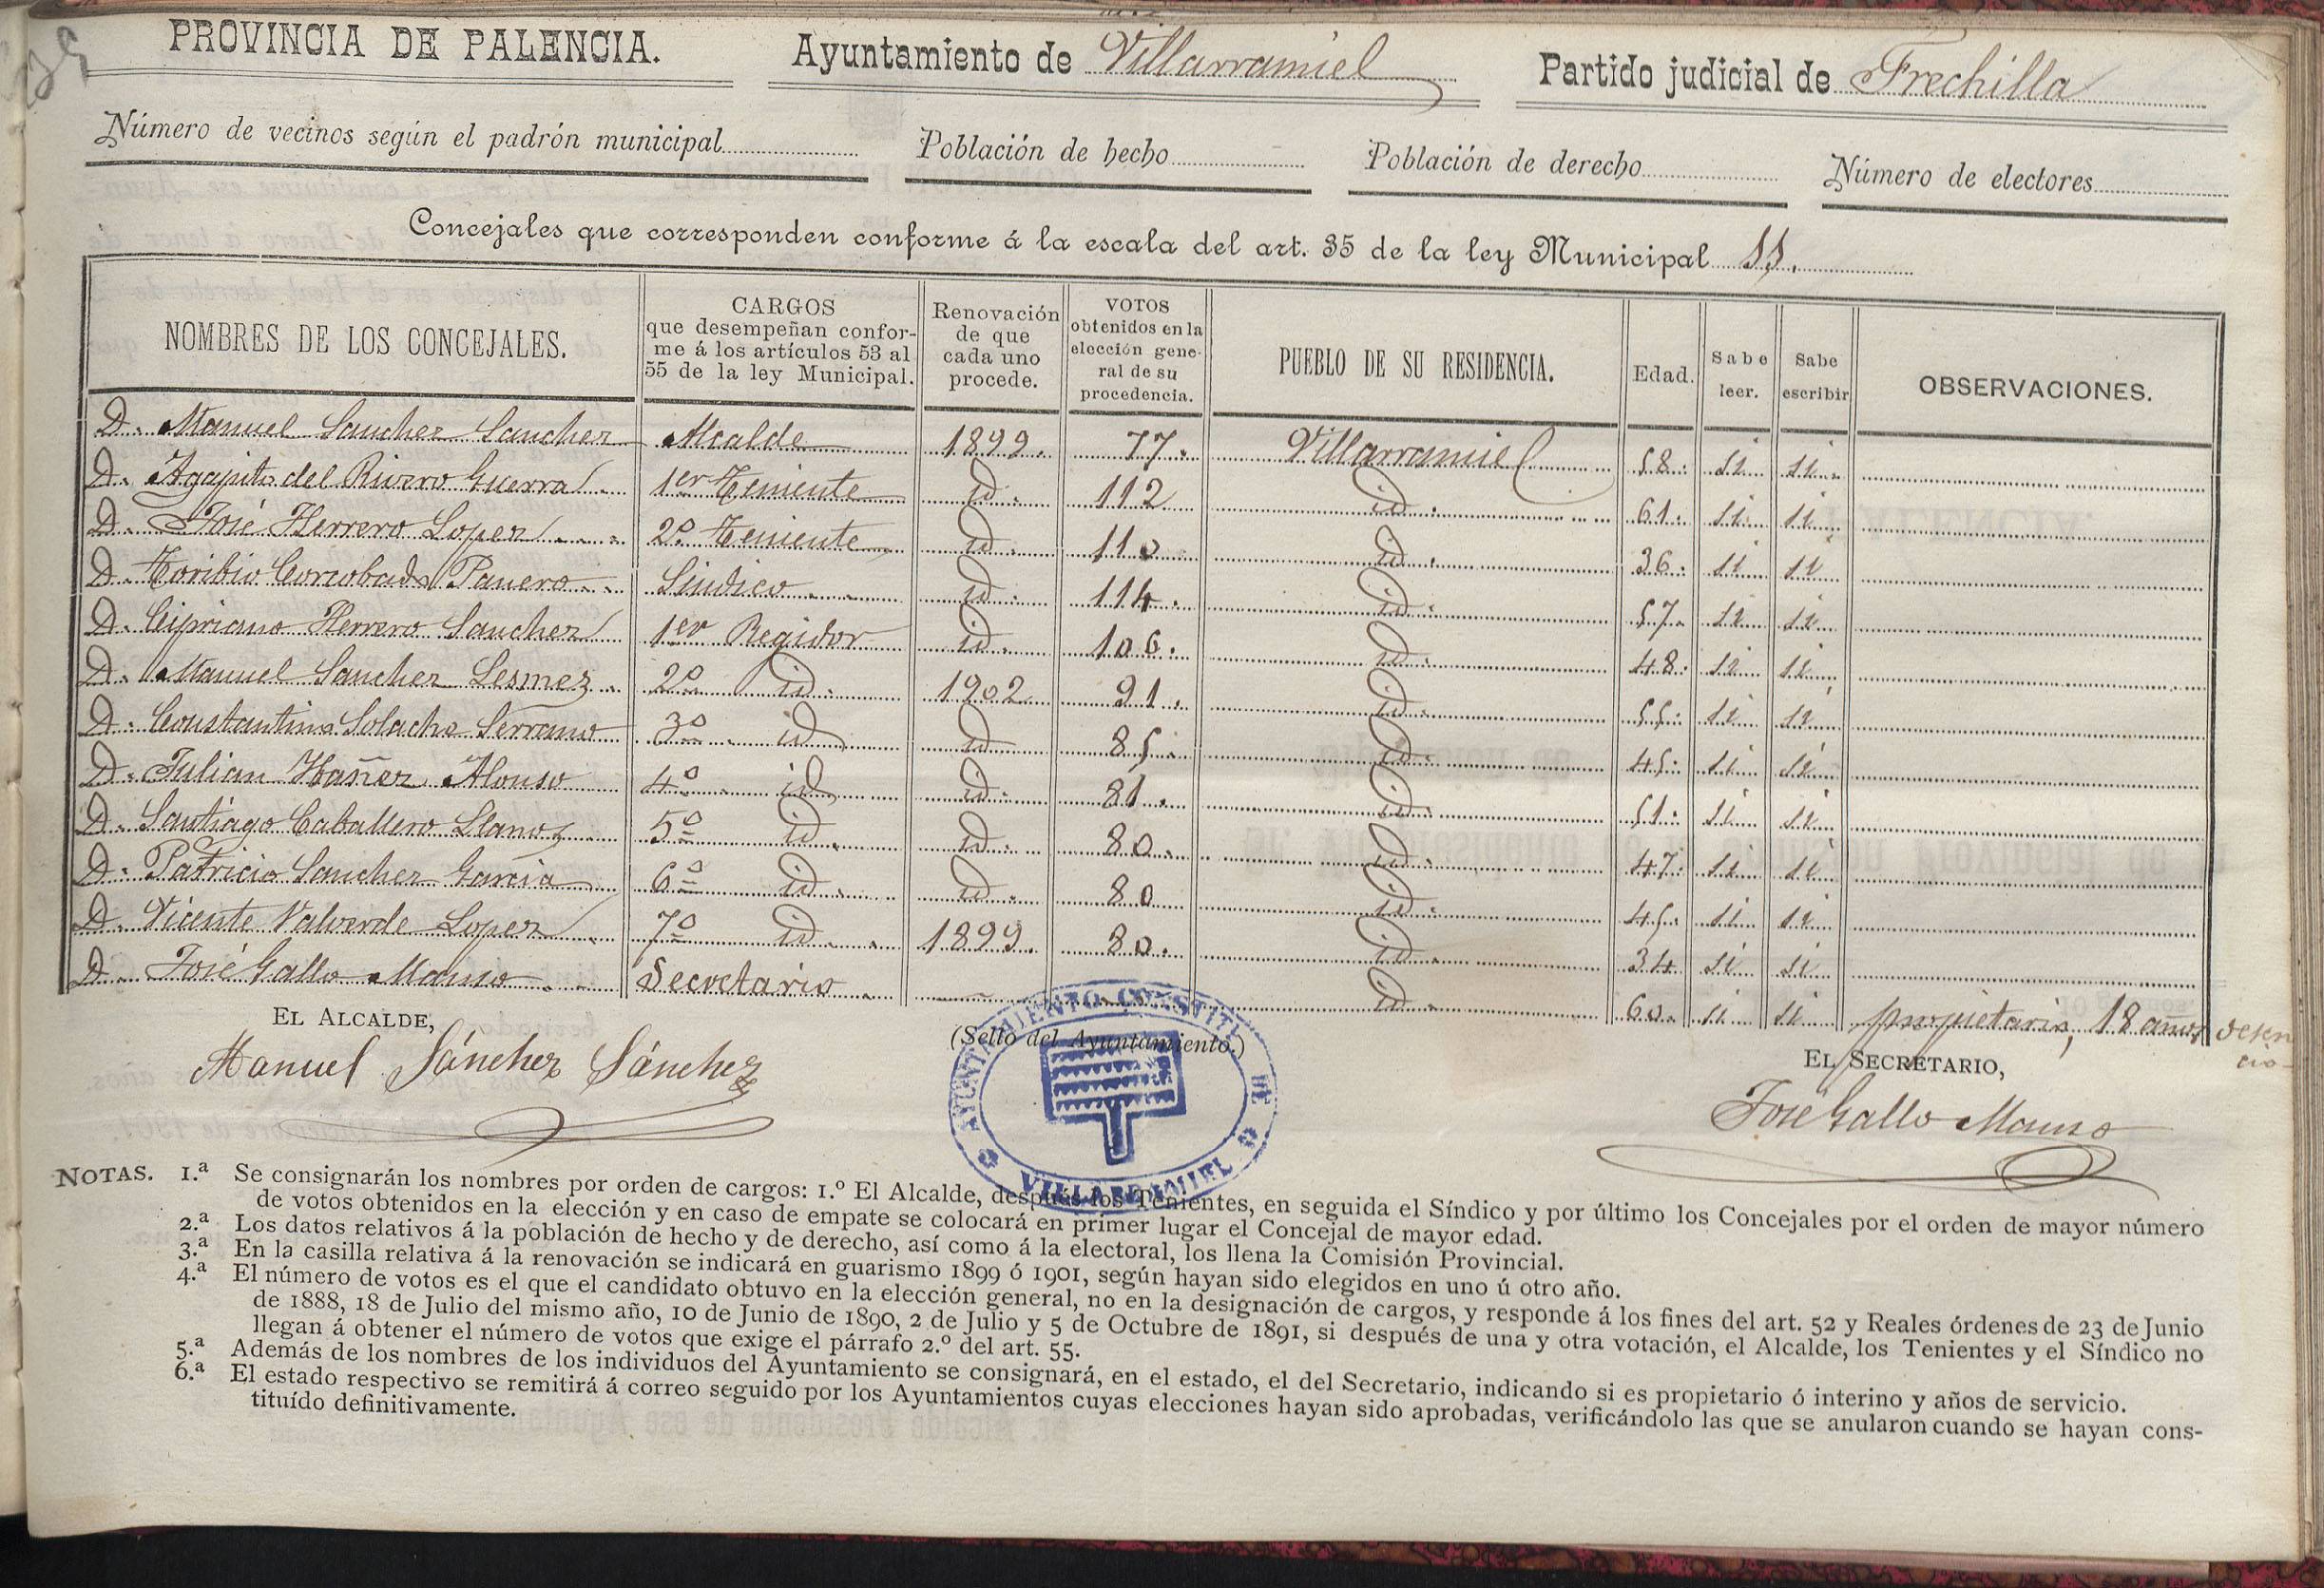 PROVINCIA DE PALENCIA. Ayuntamiento de Villarramiel Partido judicial de Frechilla
Número de vecinos según el padrón municipal Población de hecho Población de derecho Número de electores
Concejales que corresponden conforme á la escala del art. 35 de la ley Municipal 11.
NOMBRES DE LOS CONCEJALES. CARGOS que desempeñan conforme á los artículos 53 al 55 de la ley Municipal. Renovación de que cada uno procede. VOTOS obtenidos en la elección general de su procedencia. PUEBLO DE SU RESIDENCIA. Edad. Sabe leer. Sabe escribir OBSERVACIONES.
D. Manuel Sanchez Sanchez Alcalde 1899. 77. Villarramiel 58. si si.
D. Agapito del Rivero Guerra 1er Teniente id. 112 id. 61. si si
D. José Herrero Lopez 2º Teniente id. 110 id. 36. si si
D. Toribio Corcobado Panero Sindico id. 114. id. 57. si si
D. Cipriano Herrero Sanchez 1er Regidor id. 106. id. 48. si si
D. Manuel Sanchez Lesmez 2º id. 1902 91. id. 55. si si
D. Constantino Solache Serrano 3º id id 85. id. 45. si si
D. Julian Ibañez Alonso 4º id id. 81. id. 51. si si
D. Santiago Caballero Llanos 5º id. id. 80. id. 47. si si
D. Patricio Sanchez Garcia 6º id. id. 80 id. 45. si si
D. Vicente Valverde Lopez 7º id. 1899. 80. id. 34 si si
D. José Gallo Manso Secretario. id. 60. si si propietario, 18 años
EL ALCALDE, (Sello del Ayuntamiento.) EL SECRETARIO,
Manuel Sánchez Sánchez José Gallo Manso
AYUNTAMIENTO CONSTITUC DE
VILLARRAMIEL
NOTAS. 1.ª Se consignarán los nombres por orden de cargos: 1.º El Alcalde, después los Tenientes, en seguida el Síndico y por último los Concejales por el orden de mayor número
de votos obtenidos en la elección y en caso de empate se colocará en primer lugar el Concejal de mayor edad.
2.ª Los datos relativos á la población de hecho y de derecho, así como á la electoral, los llena la Comisión Provincial.
3.ª En la casilla relativa á la renovación se indicará en guarismo 1899 ó 1901, según hayan sido elegidos en uno ú otro año.
4.ª El número de votos es el que el candidato obtuvo en la elección general, no en la designación de cargos, y responde á los fines del art. 52 y Reales órdenes de 23 de Junio
de 1888, 18 de Julio del mismo año, 10 de Junio de 1890, 2 de Julio y 5 de Octubre de 1891, si después de una y otra votación, el Alcalde, los Tenientes y el Síndico no
llegan á obtener el número de votos que exige el párrafo 2.º del art. 55.
5.ª Además de los nombres de los individuos del Ayuntamiento se consignará, en el estado, el del Secretario, indicando si es propietario ó interino y años de servicio.
6.ª El estado respectivo se remitirá á correo seguido por los Ayuntamientos cuyas elecciones hayan sido aprobadas, verificándolo las que se anularon cuando se hayan cons-
tituído definitivamente.